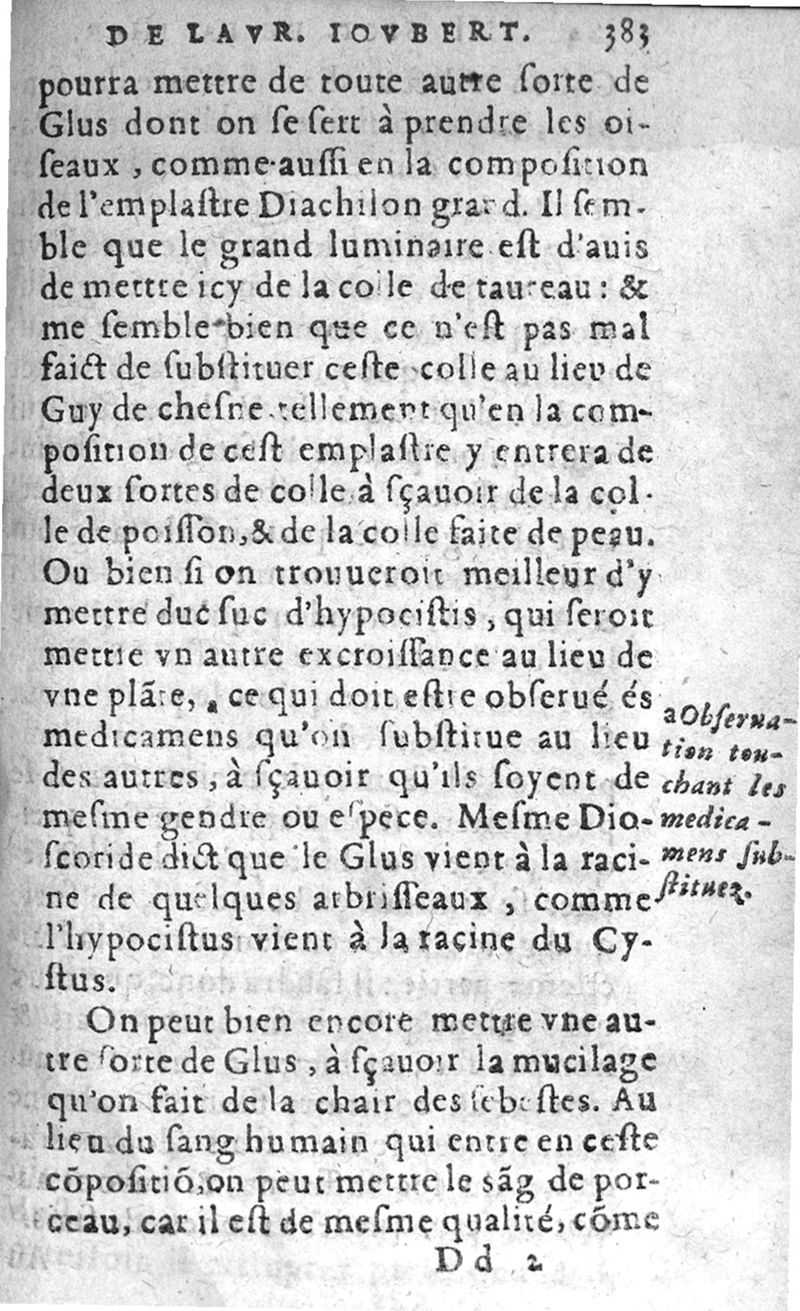 DE LAVR. IOVBERT. 383
pourra mettre de toute autre ſorte de
Glus dont on ſe ſert à prendre les oi-
ſeaux , comme auſſi en la compoſition
de l'emplaſtre Diachilon grand. Il ſem-
ble que le grand luminaire eſt d'auis
de mettre icy de la colle de taureau : &
me ſemble bien que ce n'eſt pas mal
faict de ſubſtituer ceſte colle au lieu de
Guy de cheſne tellement qu'en la com-
poſition de ceſt emplaſtre y entrera de
deux ſortes de colle à ſçauoir de la col-
le de poiſſon, & de la colle faite de peau.
Ou bien ſi on trouueroit meilleur d'y
mettre duc ſuc d'hypociſtis , qui ſeroit
mettre vn autre excroiſſance au lieu de
vne plãte, a ce qui doit eſtre obſerué és
medicamens qu'on ſubſtitue au lieu
des autres , à ſçauoir qu'ils ſoyent de
meſme gendre ou eſpece. Meſme Dio-
ſcoride dict que le Glus vient à la raci-
ne de quelques arbriſſeaux , comme
l'hypociſtus vient à la racine du Cy-
ſtus.
a Obſerua-
tion tou-
chant les
medica-
mens ſub-
ſtituez.
On peut bien encore mettre vne au-
tre ſorte de Glus , à ſçauoir la mucilage
qu'on fait de la chair des ſebeſtes. Au
lieu du ſang humain qui entre en ceſte
cõpoſitiõ, on peut mettre le sãg de por-
ceau, car il eſt de meſme qualité, cõme
Dd 2